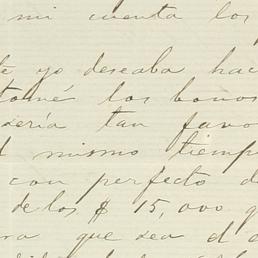 mi cuenta los
yo deseaba hac
tomé los bonos
sería tan favo
mismo tiemp
con perfecto d
de los $ 15,000 q
que sea d